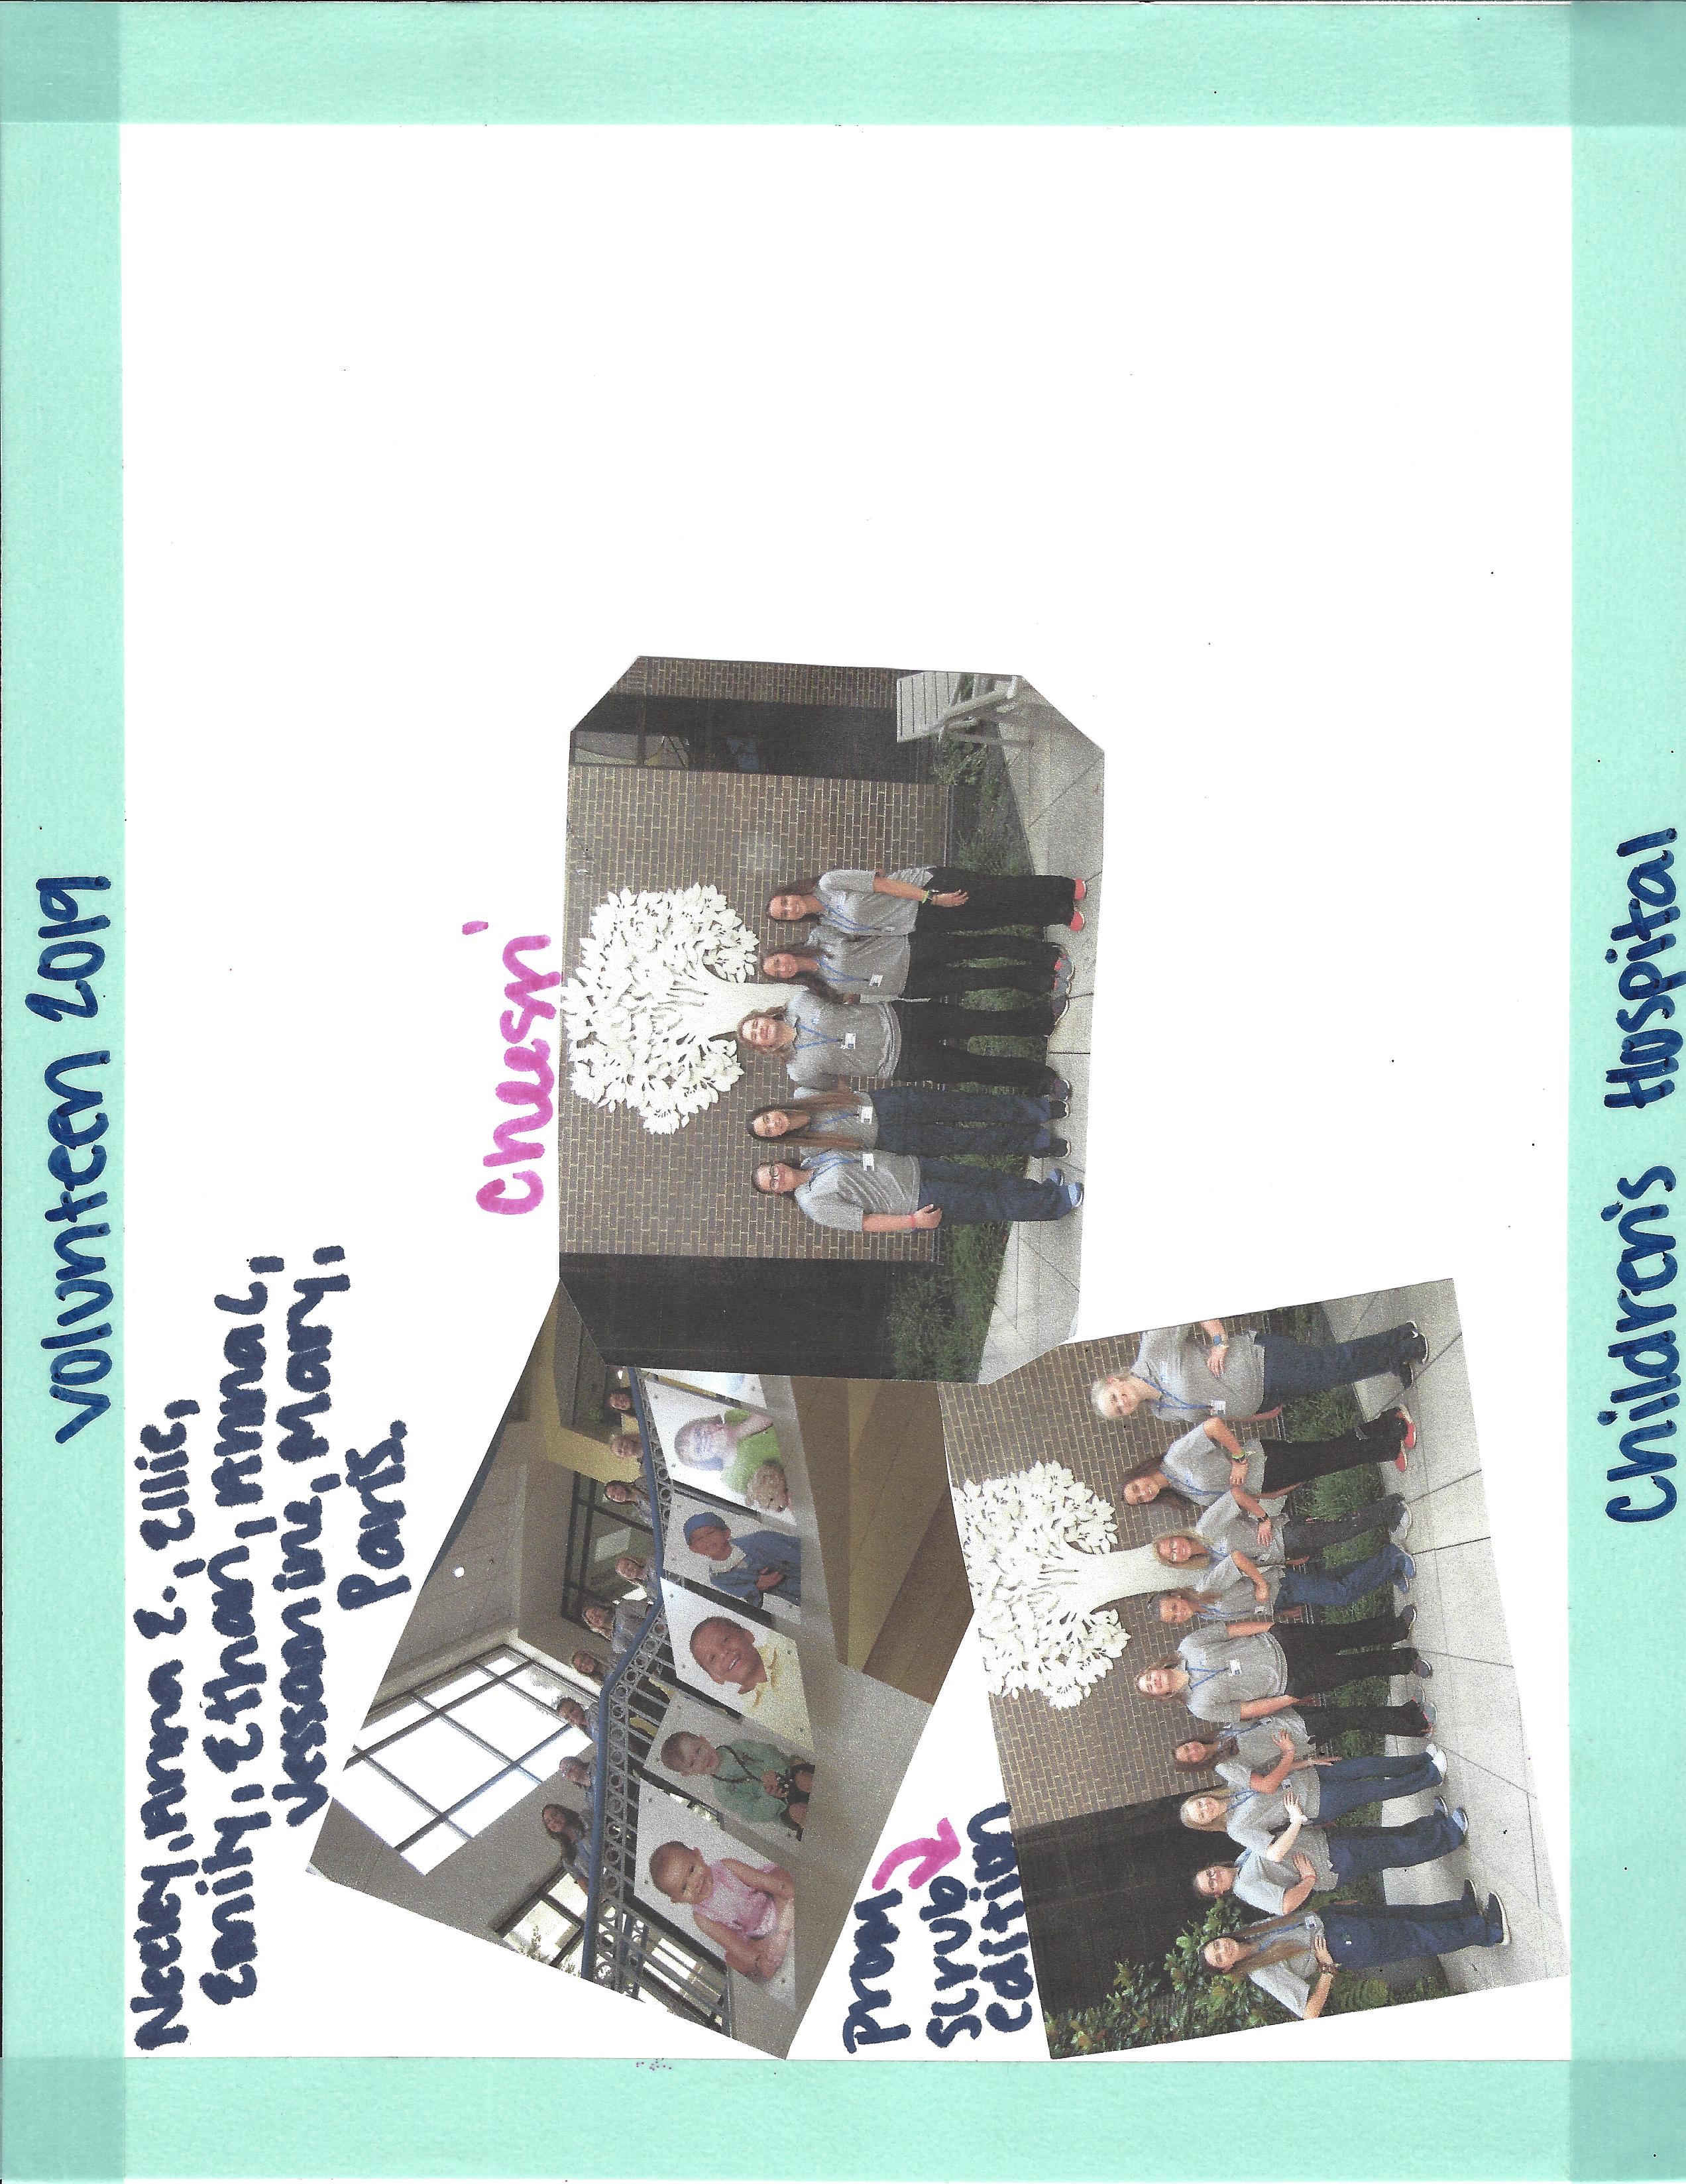 Volunteen 2019
Neely, Anna E., Ellie,
Emily, Ethan, Anna L,
Jessamine, Mary,
Paris.
Cheesin'
Prom
Scrub
Edition
Children's Hospital